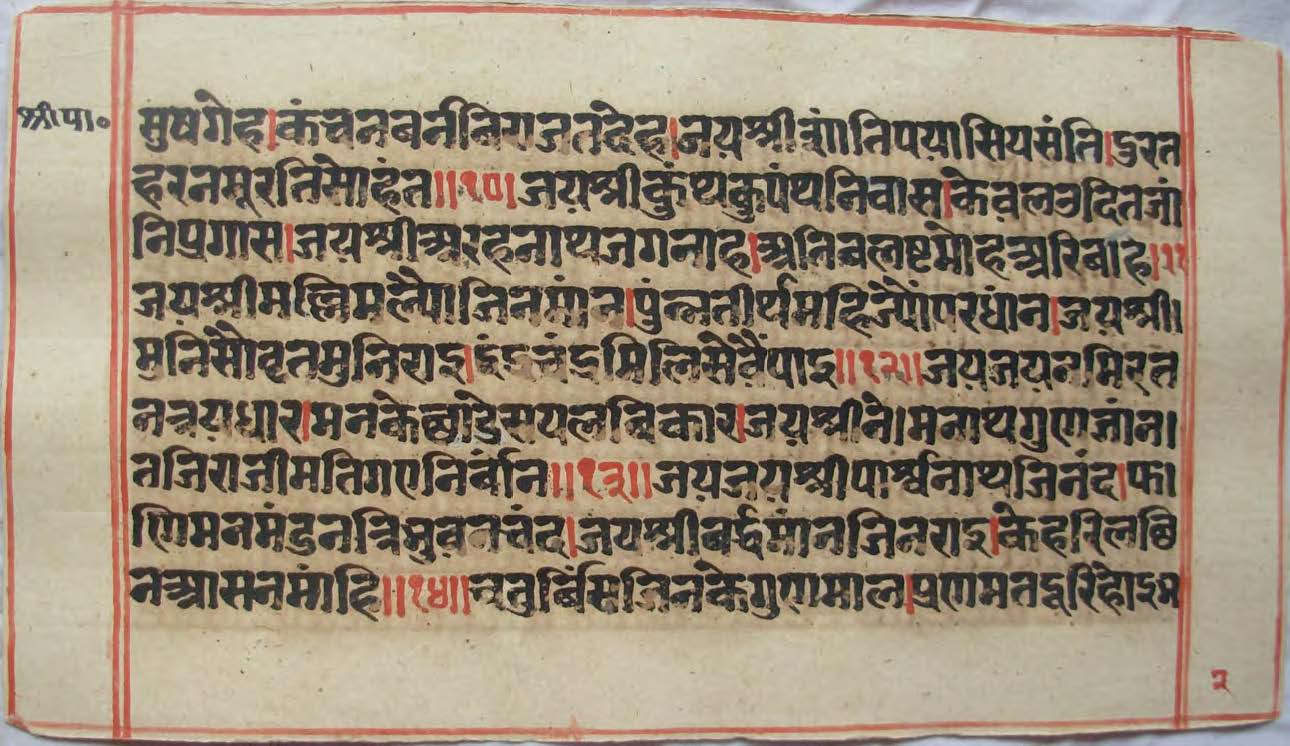 श्रीपा॰
मुषगेह।कंचनबर्नविराजतदेह।जयश्रीशांतिपयासियसंति।दुरत
हरनमूरतिसोहंत॥१०।जयश्रीकुंथकुपंथनिवास।केवलउदितजां
निप्रगास।जयश्रीअरहनाथजगनाह।अतिबलअष्टमोहअरिबाह।११
जयश्रीमल्लिमलैयाजिनमांन।पुंन्नतीर्थमहिज्यौंपरधांन।जयश्री।
मुनिसौवृतमुनिराइ।इंद्रचंद्रमिलिसेवैंपाइ॥१२॥जयजयनमिरत
नत्रयधार।मनकेछांडेसयलविकार।जयश्रीने।मनाथगुणजांन।
तजिराजीमतिगएनिर्बान॥१३॥जयजयश्रीपार्श्वनाथजिनंद।फ।
णिमनमंडनत्रिभुवनचंद।जयश्रीबर्द्धमांनजिनराइ।केहरिलछि
नआसनमांहि॥१४॥चतुर्बिंसजिनकेगुणमाल।प्रणमतदूरिहोइभ
२